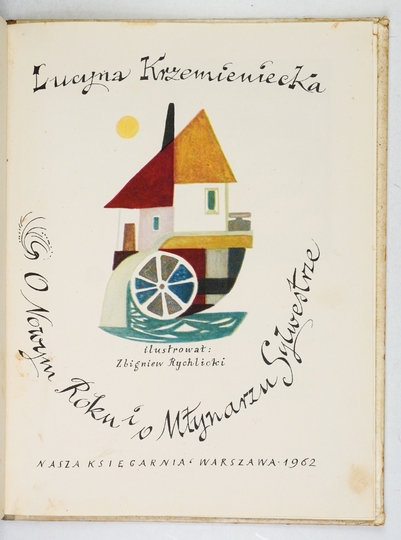 Lucyna Krzemieniecka
O Nowym Roku i o Młynarzu Sylwestrze
ilustrował:
Zbigniew Rychlicki
NASZA KSIĘGARNIA · WARSZAWA · 1962